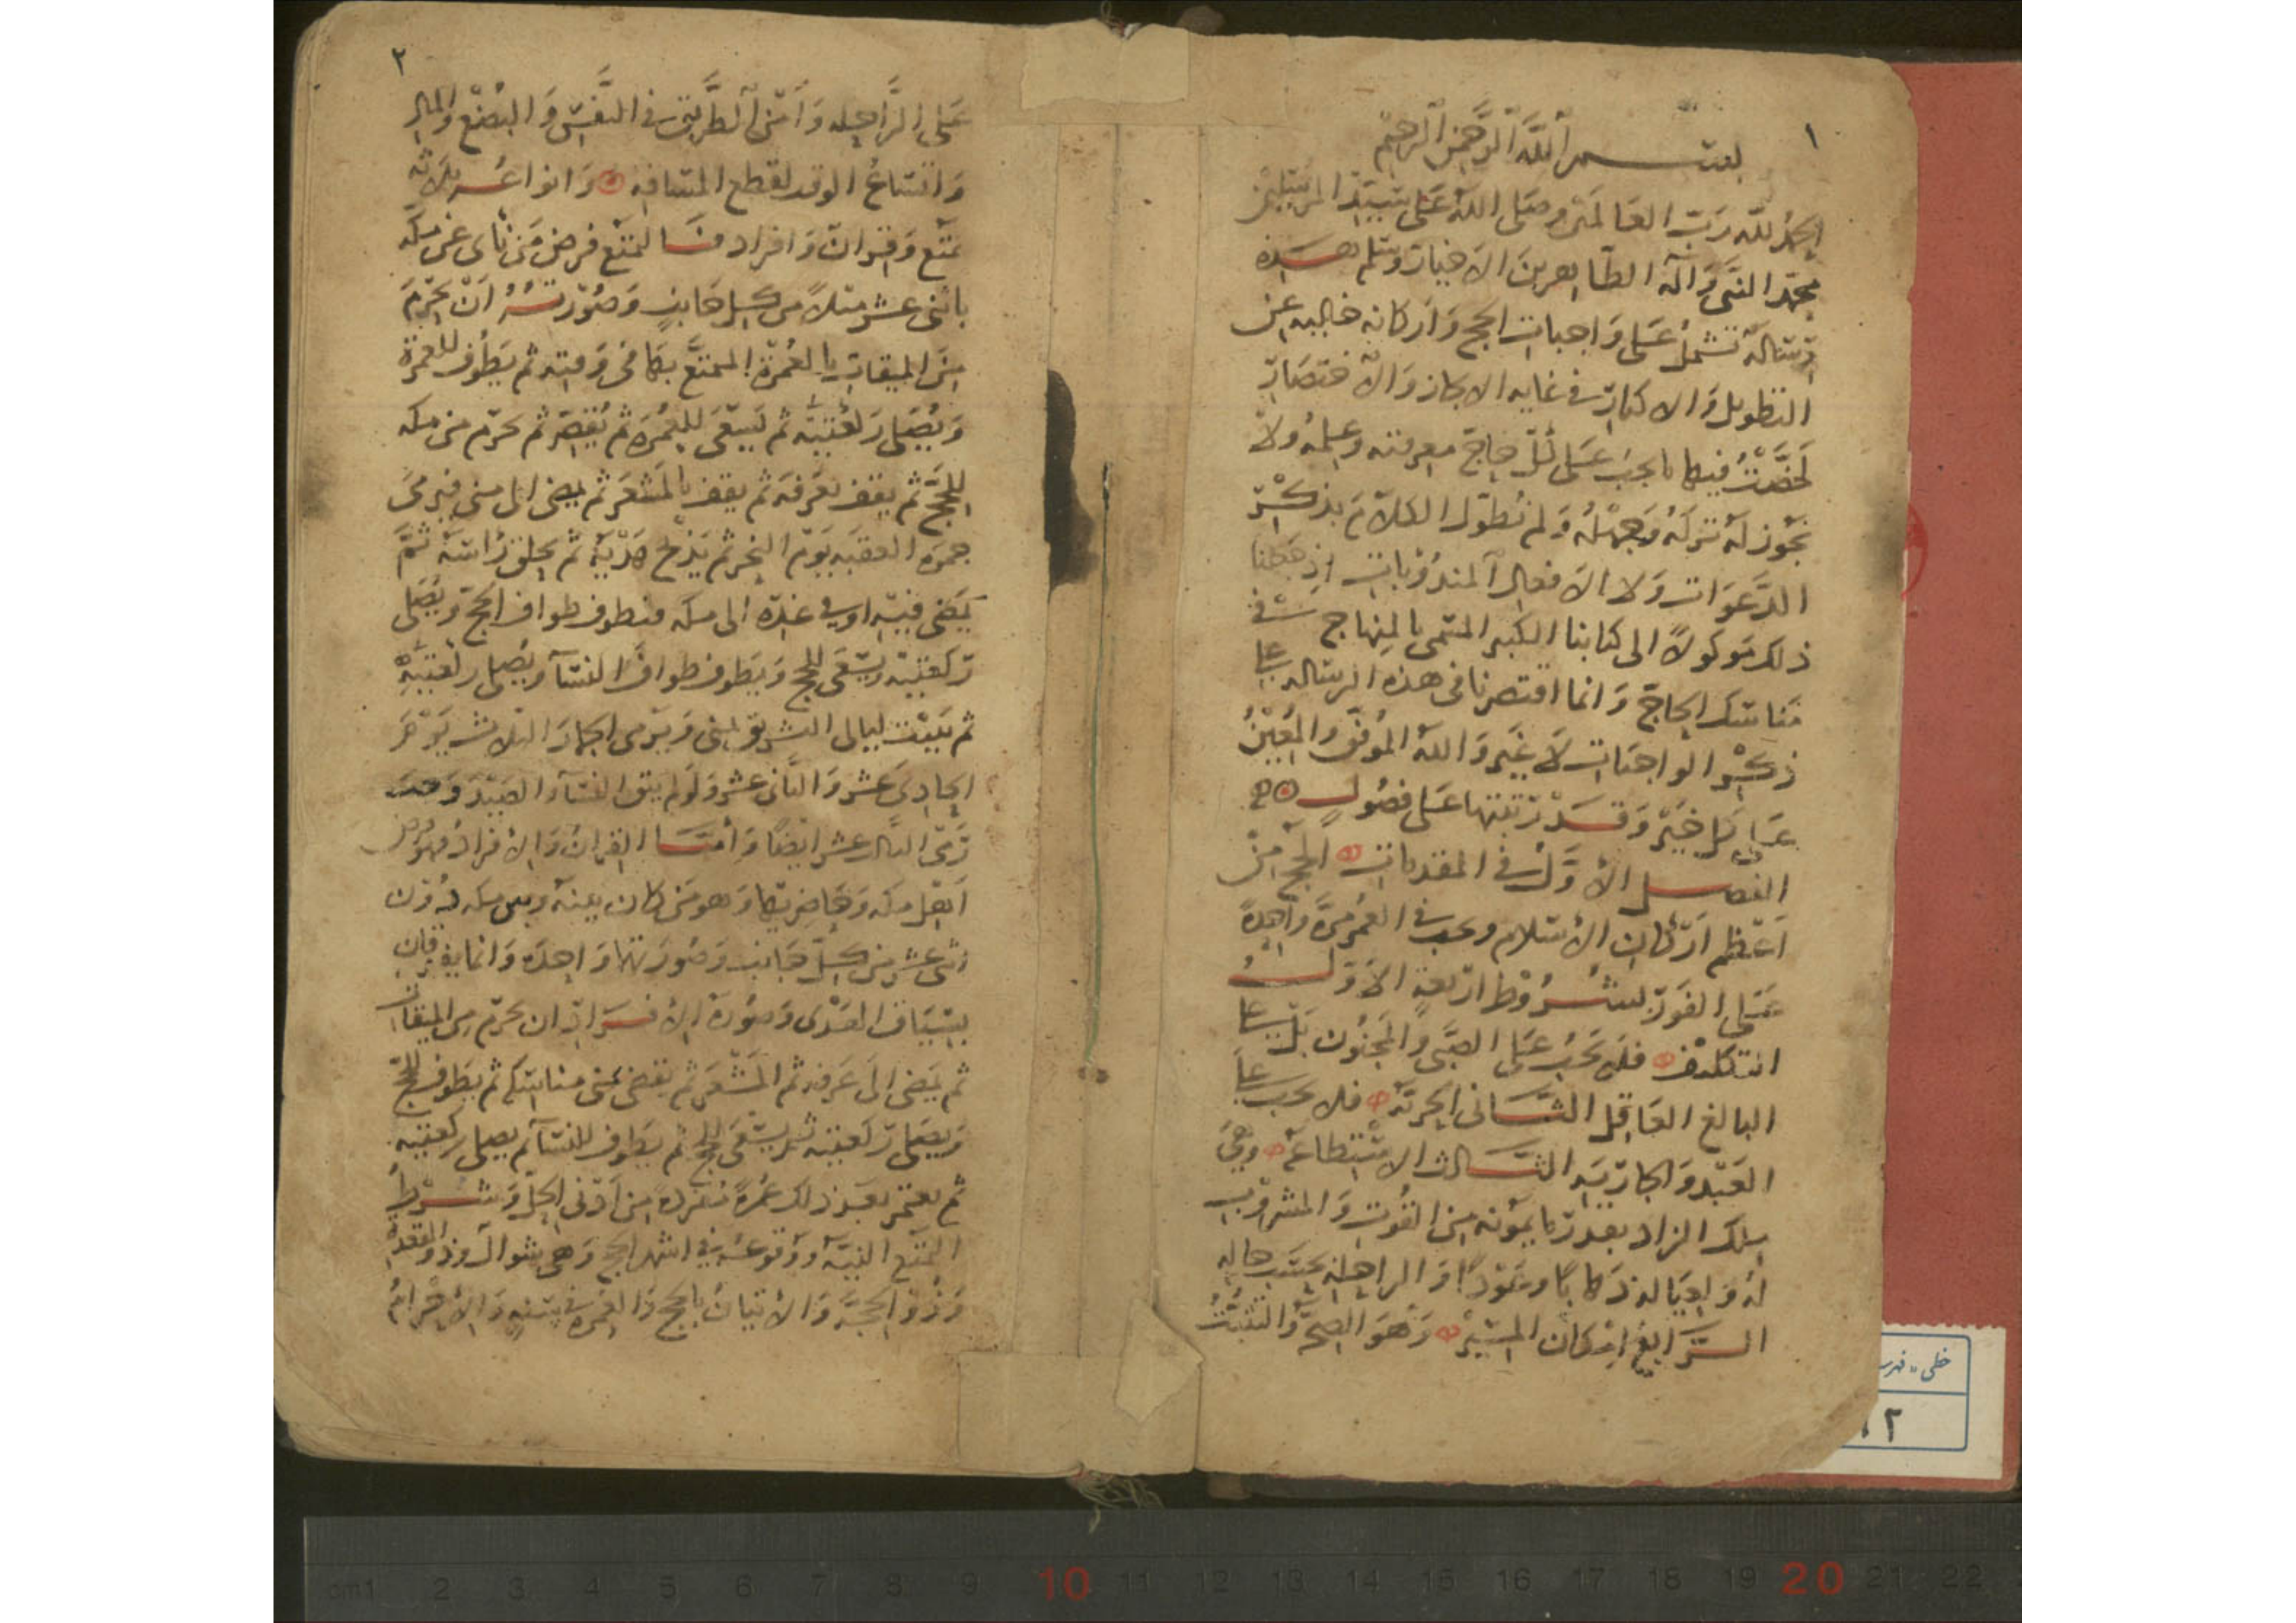 ١
بسم الله الرحمن الرحيم
الحمد لله رب العالمين وصلى الله على سيد المرسلين
محمد النبي وآله الطاهرين الاخيار وسلم هذه
رسالة تشمل على واجبات الحج واركانه خالية عن
التطويل والاكثار في غاية الايجاز والاختصار
لخصت فيها ما يجب على كل حاج معرفته وعلمه ولا
يجوز له تركه وجهله ولم نطول الكلام بذكر
الدعوات ولا الافعال المندوبات اذ جعلنا
ذلك موكولا الى كتابنا الكبير المسمى بالمنهاج في
مناسك الحاج وانما اقتصرنا في هذه الرسالة على
ذكر الواجبات لا غير والله الموفق والمعين
على كل خير وقد رتبتها على فصول
الفصل الاول في المقدمات الحج من
اعظم اركان الاسلام ويجب في العمر مرة واحدة
على الفور بشروط اربعة الاول
التكليف فلا يجب على الصبي والمجنون بل على
البالغ العاقل الثاني الحرية فلا يجب على
العبد والجارية الثالث الاستطاعة وهي
ملك الزاد بقدر ما يمونه من القوت والمشروب
له ولعياله ذهابا وعودا والراحلة بحسب حاله
الرابع امكان المسير وهو الصحة والتثبت
٢
على الراحلة وأمن الطريق في النفس والبضع والمال
واتساع الوقت لقطع المسافة وانواعه ثلاثة
تمتع وقران وافراد فالتمتع فرض من نأى عن مكة
باثنى عشر ميلا من كل جانب وصورته أن يحرم
من الميقات بالعمرة المتمتع بها في وقته ثم يطوف للعمرة
ويصلى ركعتيه ثم يسعى للعمرة ثم يقصر ثم يحرم من مكة
للحج ثم يقف بعرفة ثم يقف بالمشعر ثم يمضى الى منى فيرمى
جمرة العقبة يوم النحر ثم يذبح هديه ثم يحلق رأسه ثم
يمضى فيه او في غده الى مكة فيطوف طواف الحج ويصلى
ركعتيه ويسعى للحج ويطوف طواف النساء ويصلى ركعتيه
ثم يبيت ليالى التشريق بمنى ويرمى الجمار الثلاث يوم
الحادى عشر والثانى عشر ولو لم يتق النساء والصيد وجب
رمى الثالث عشر ايضا وأما القران والافراد فهو فرض
أهل مكة وحاضريها وهو من كان بينه وبين مكة دون
اثنى عشر من كل جانب وصورتهما واحدة وانما يفترقان
بسياق الهدى وصورة الافراد ان يحرم من الميقات
ثم يمضى الى عرفة ثم المشعر ثم يقضى بمنى مناسكه ثم يطوف للحج
ويصلى ركعتيه ثم يسعى للحج ثم يطوف للنساء ثم يصلى ركعتيه
ثم يعتمر بعد ذلك عمرة مفردة من أدنى الحل وشرط
التمتع النية ووقوعه في اشهر الحج وهى شوال وذو القعدة
وذو الحجة والاتيان بالحج والعمرة في سنة والاحرام